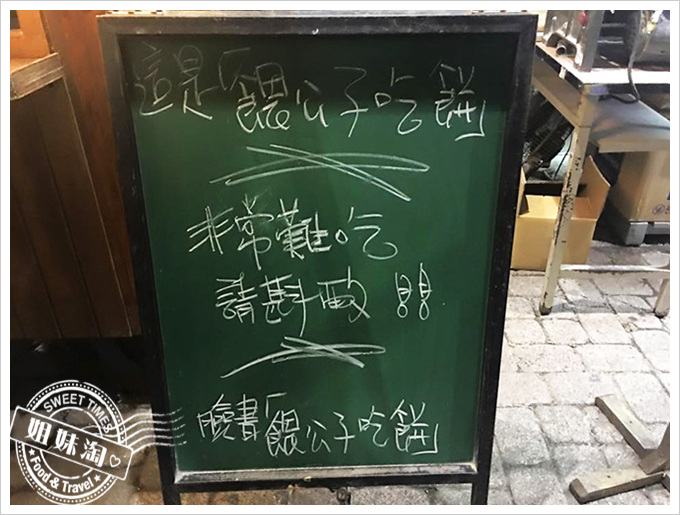 這是「餵公子吃餅」
非常難吃
請斟酌!!
臉書「餵公子吃餅」
SWEET TIMES
姐妹淘
Food & Travel